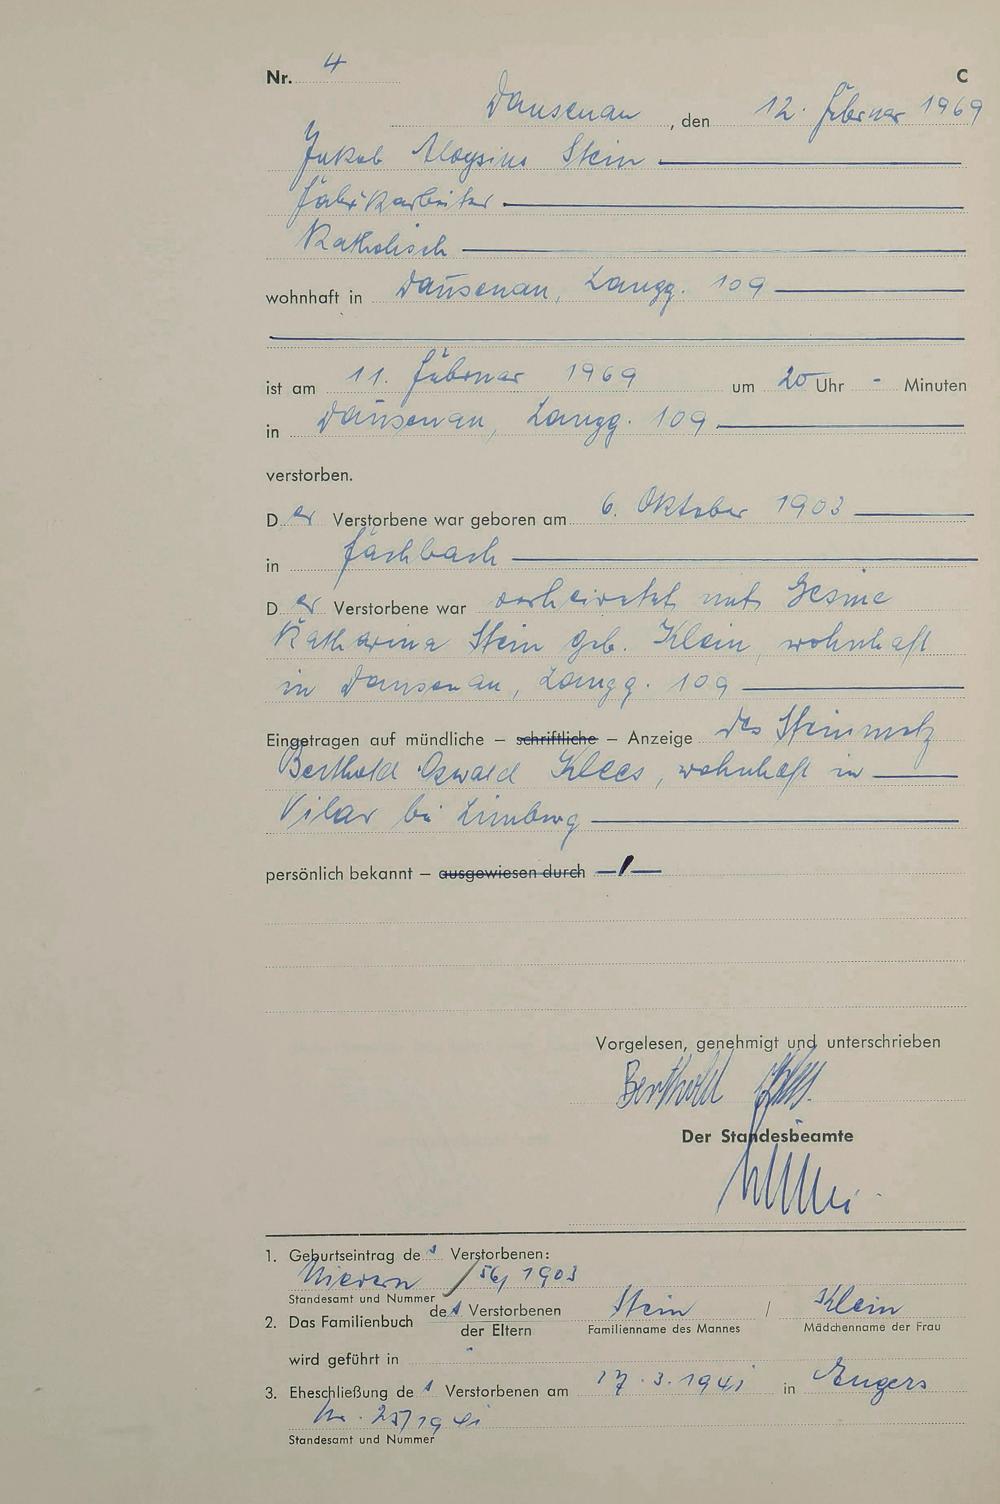 Nr. 4 C
Dausenau, den 12. Februar 1969
Jakob Aloysius Stein
Fabrikarbeiter
Katholisch
wohnhaft in Dausenau, Langg. 109
ist am 11. Februar 1969 um 20 Uhr - Minuten
in Dausenau, Langg. 109
verstorben.
Der Verstorbene war geboren am 6. Oktober 1903
in Fachbach
Der Verstorbene war verheiratet mit Gesine
Katharina Stein geb. Klein, wohnhaft
in Dausenau, Langg. 109
Eingetragen auf mündliche – schriftliche – Anzeige des Steinmetz
Berthold Oswald Klees, wohnhaft in
Vilar bei Limburg
persönlich bekannt – ausgewiesen durch –/–
Vorgelesen, genehmigt und unterschrieben
Berthold Klees
Der Standesbeamte
1. Geburtseintrag des Verstorbenen:
Nievern / 56/1903
Standesamt und Nummer
2. Das Familienbuch des Verstorbenen der Eltern Stein / Klein
Familienname des Mannes Mädchenname der Frau
wird geführt in -
3. Eheschließung des Verstorbenen am 17.3.1941 in Engers
Nr. 25/1941
Standesamt und Nummer